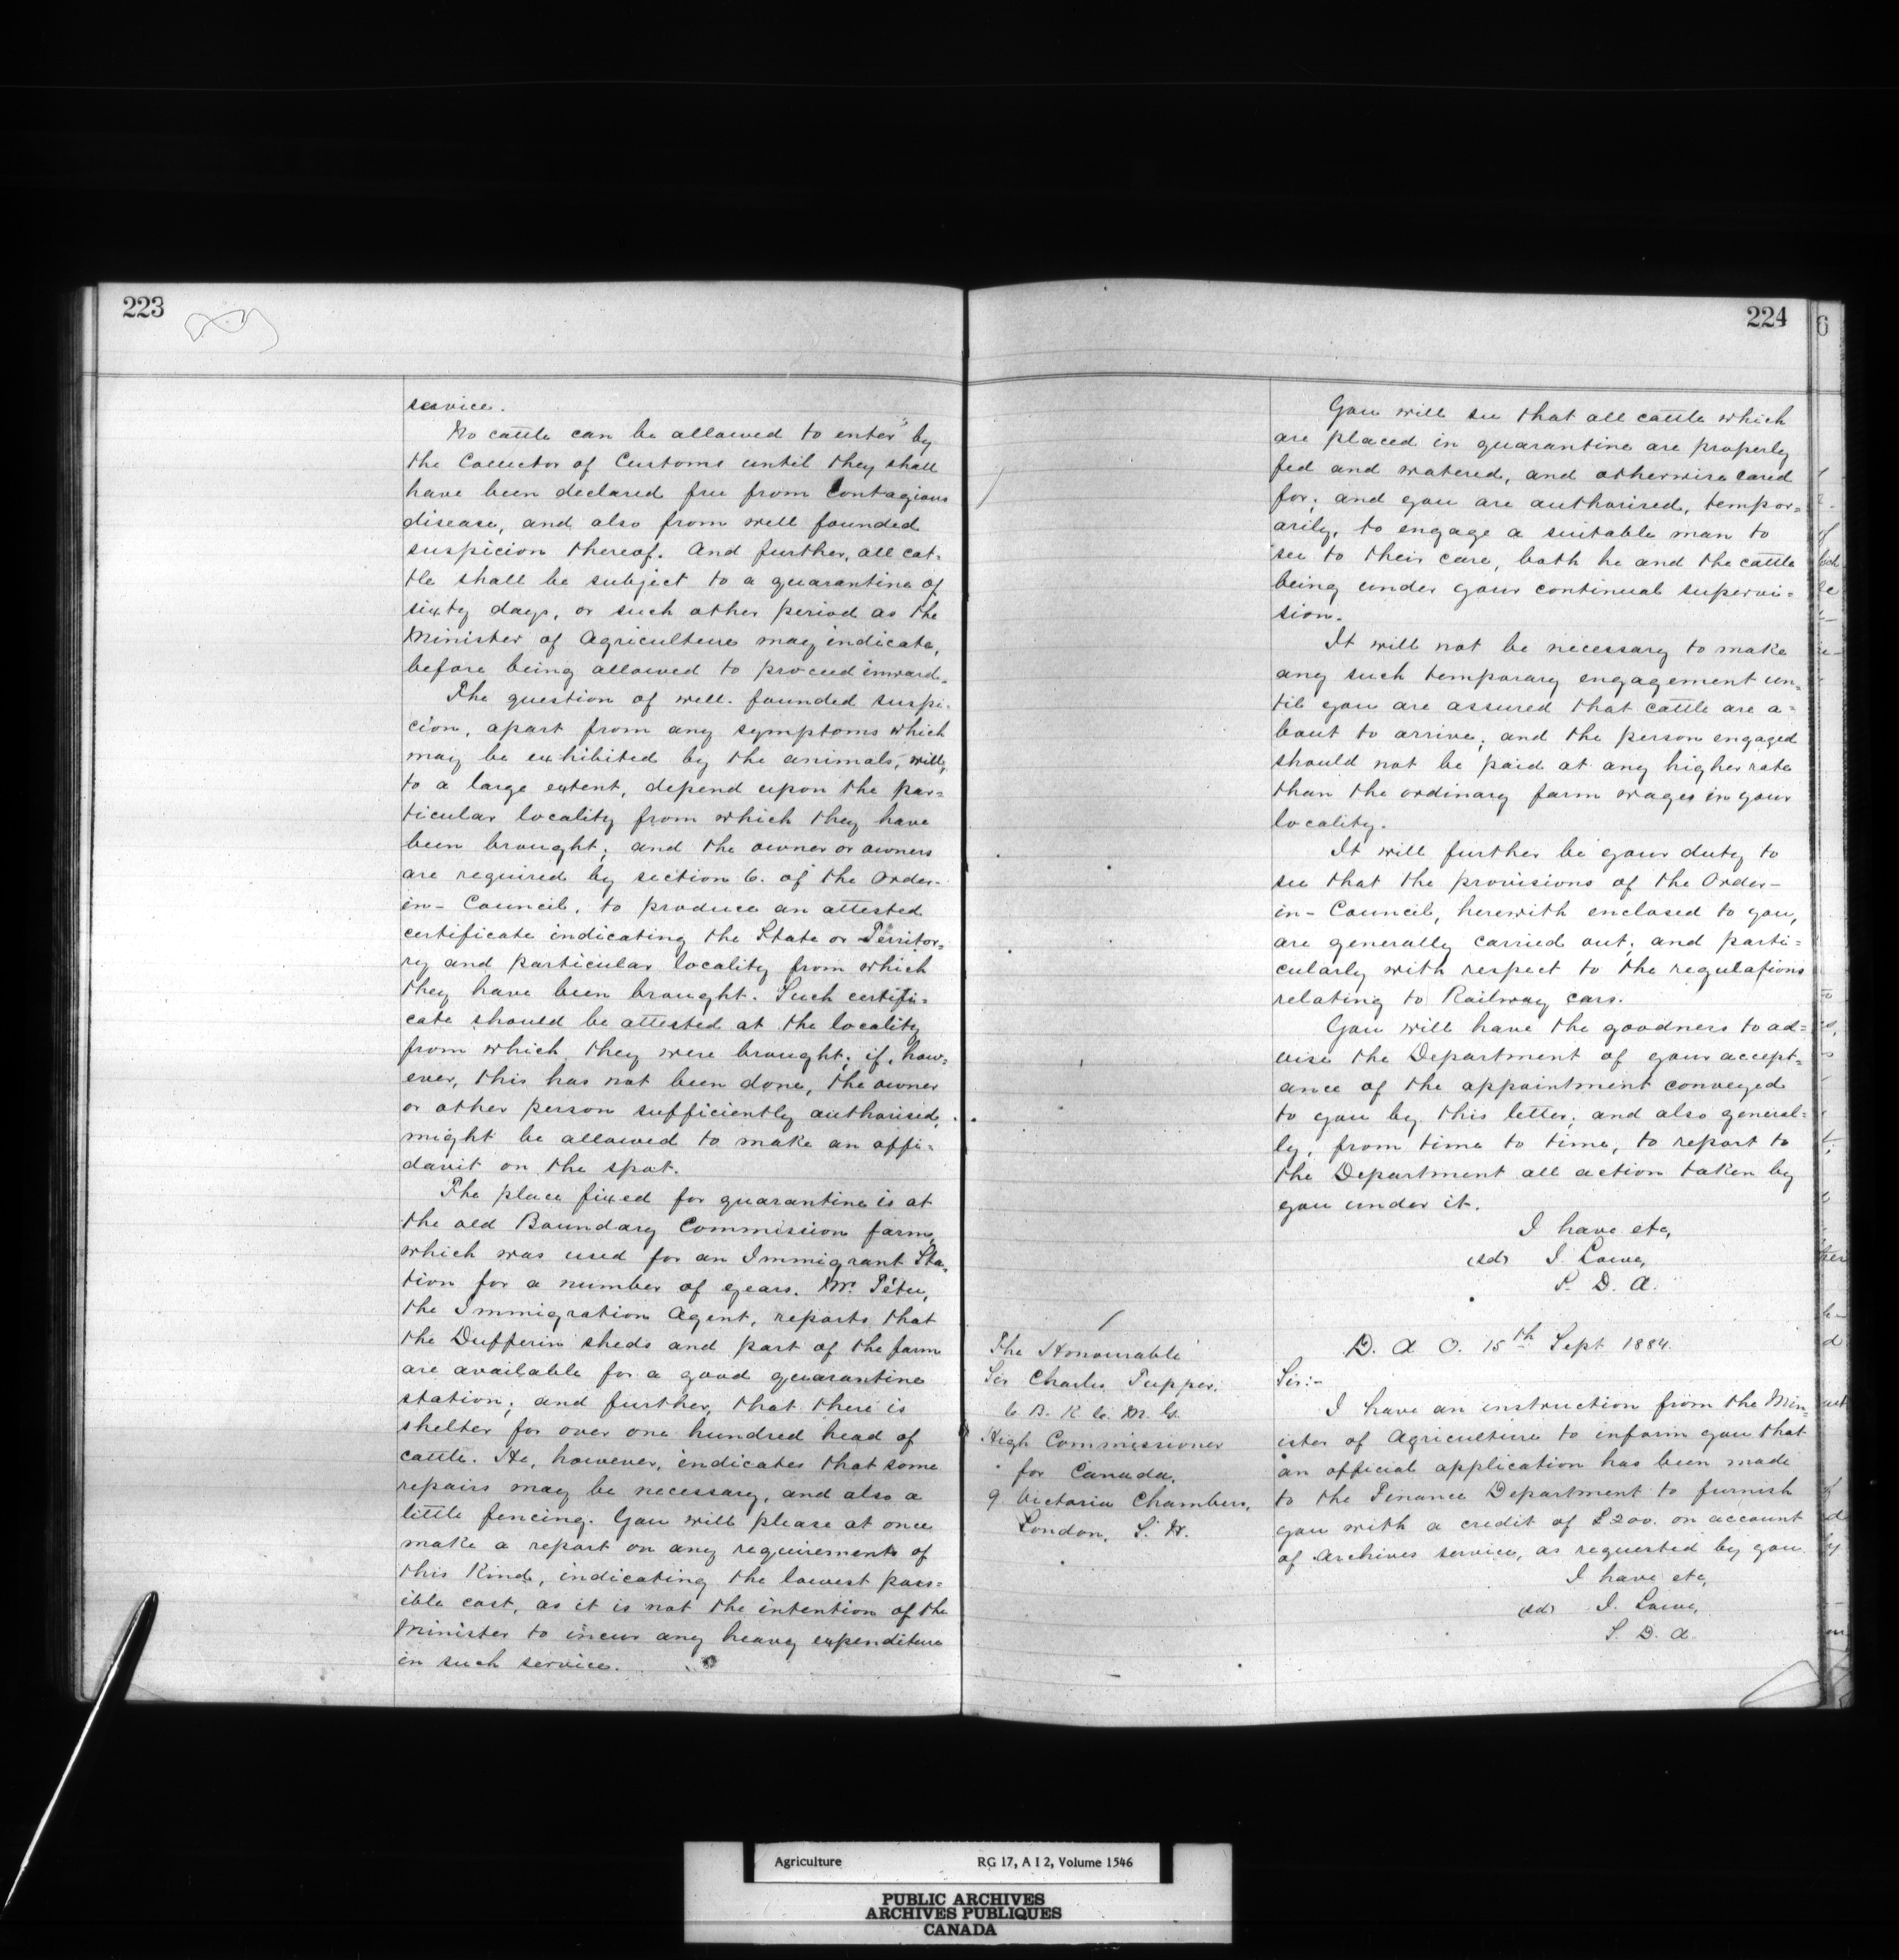 223
service.
No cattle can be allowed to enter by
the Collector of Customs until they shall
have been declared free from Contagious
disease, and also from well founded
suspicion thereof. And further, all cat-
tle shall be subject to a quarantine of
sixty days, or such other period as the
Minister of Agriculture may indicate,
before being allowed to proceed inward.
The question of well-founded suspi-
cion, apart from any symptoms which
may be exhibited by the animals, will,
to a large extent, depend upon the par=
ticular locality from which they have
been brought; and the owner or owners
are required by section 6. of the Order-
in-Council, to produce an attested
certificate indicating the State or Territor=
ry and particular locality from which
they have been brought. Such certifi=
cate should be attested at the locality
from which they were brought; if, how=
ever, this has not been done, the owner
or other person sufficiently authorised,
might be allowed to make an affi=
davit on the spot.
The place fixed for quarantine is at
the old Boundary Commission farm,
which was used for an Immigrant Sta=
tion for a number of years. Mr. Têtu,
the Immigration Agent, reports that
the Dufferin sheds and part of the farm
are available for a good quarantine
station; and further, that there is
shelter for over one hundred head of
cattle. He, however, indicates that some
repairs may be necessary, and also a
little fencing. You will please at once
make a report on any requirements of
this kind, indicating the lowest poss=
ible cost, as it is not the intention of the
Minister to incur any heavy expenditure
in such service.
224
You will see that all cattle which
are placed in quarantine are properly
fed and watered, and otherwise cared
for; and you are authorised, tempor=
arily, to engage a suitable man to
see to their care, both he and the cattle
being under your continual supervi=
sion.
It will not be necessary to make
any such temporary engagement un=
til you are assured that cattle are a=
bout to arrive; and the person engaged
should not be paid at any higher rate
than the ordinary farm wages in your
locality.
It will further be your duty to
see that the provisions of the Order-
in-Council, herewith enclosed to you,
are generally carried out; and parti=
cularly with respect to the regulations
relating to Railway cars.
You will have the goodness to ad=
vise the Department of your accept=
ance of the appointment conveyed
to you by this letter; and also general=
ly, from time to time, to report to
the Department all action taken by
you under it.
I have etc,
(sd) J. Lowe,
S. D. A.
The Honourable
Sir Charles Tupper.
C. B. K. C. M. G.
High Commissioner
for Canada,
9 Victoria Chambers,
London, S. W.
D. A. O. 15th Sept 1884.
Sir:-
I have an instruction from the Min=
ister of Agriculture to inform you that
an official application has been made
to the Finance Department to furnish
you with a credit of £200. on account
of Archives service, as requested by you.
I have etc,
(sd) J. Lowe,
S. D. A.
6
Agriculture RG 17, A I 2, Volume 1546
PUBLIC ARCHIVES
ARCHIVES PUBLIQUES
CANADA